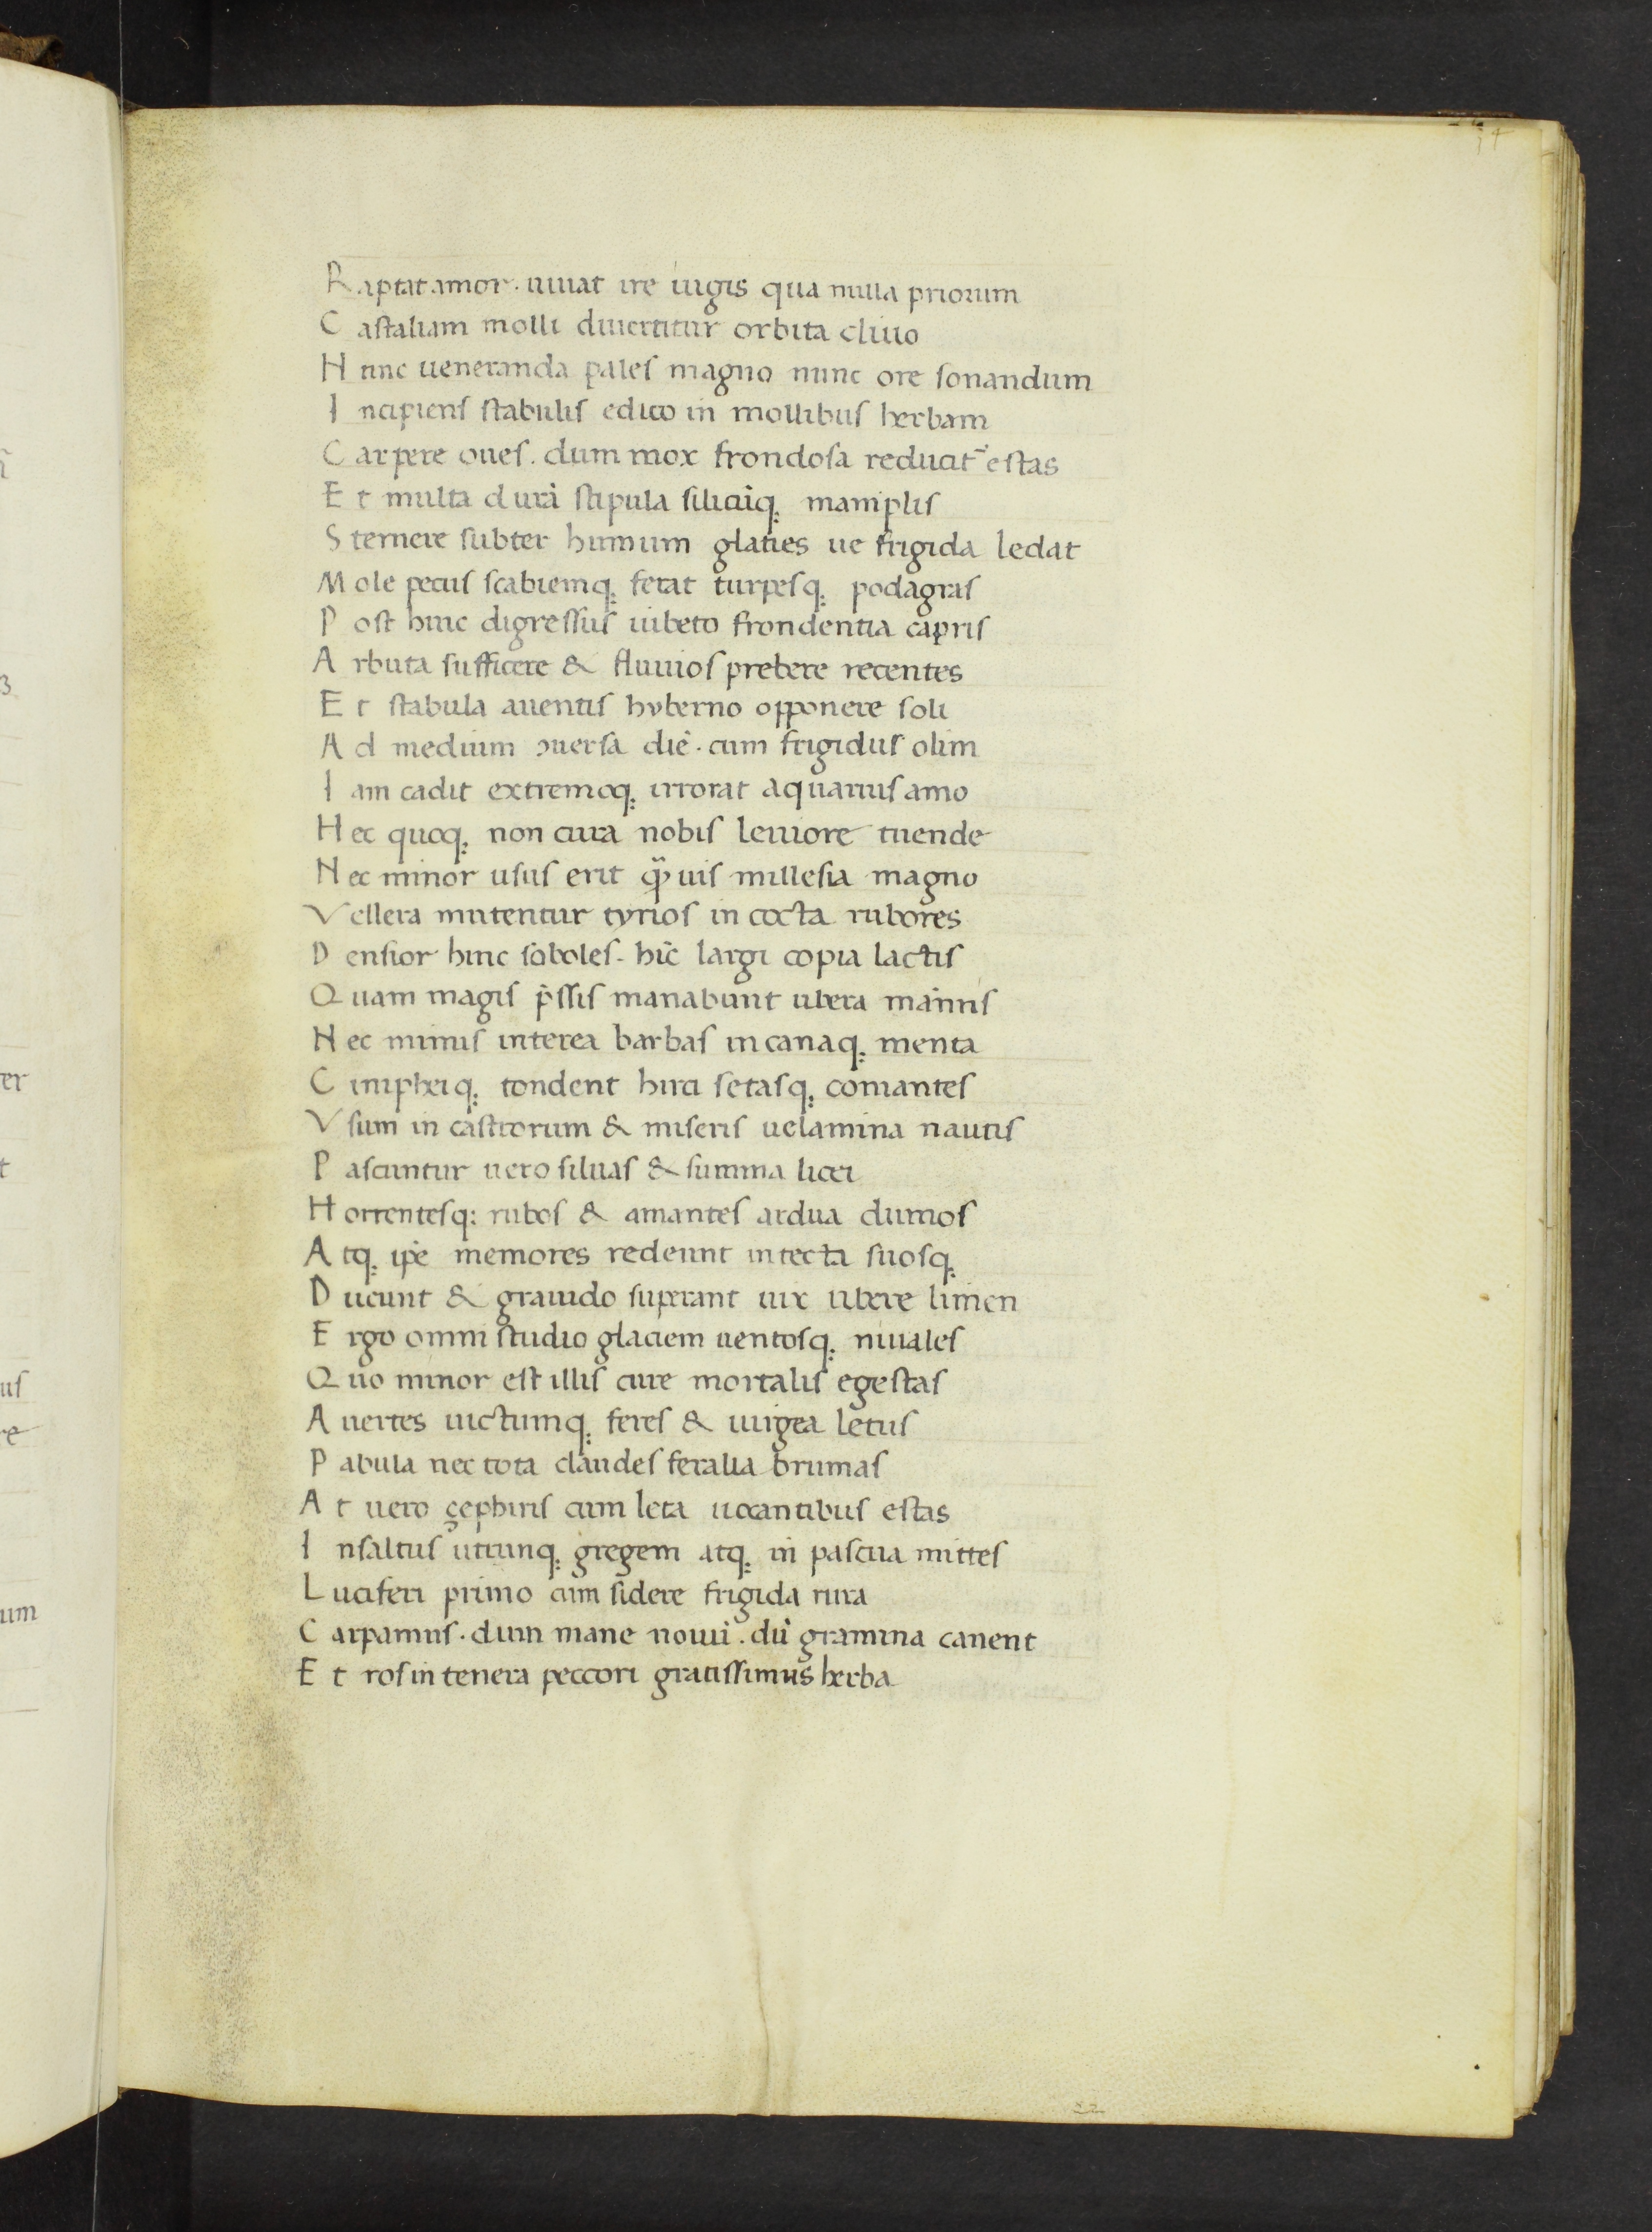 Raptat amor. iuuat ire iugis qua nulla priorum
Castaliam molli diuertitur orbita cliuo
Hunc ueneranda pales magno nunc ore sonandum
Incipiens stabulis edico in mollibus herbam
Carpere oues. dum mox frondosa reducit᷑ estas
Et multa durā stipula siliciīq; maniplis
Sternere subter humum glaties ue frigida ledat
Mole pecus scabiemq; ferat turpesq; podagras
Post hinc digressus iubeto frondentia capris
Arbuta sufficere & fluuios prebere recentes
Et stabula auentis hyberno opponere soli
Ad medium ɔuersa diē. cum frigidus olim
Iam cadit extremoq; irrorat aquarius amo
Hec quoq; non cura nobis leuiore tuende
Nec minor usus erit q̃uis millesia magno
Vellera mutentur tyrios in cocta rubores
Densior hinc soboles. hīc largi copia lactis
Quam magis p̄ssis manabunt ubera māmis
Nec minus interea barbas incanaq; menta
Cinipheiq; tondent hirci setasq; comantes
Vsum in castrorum & miseris uelamina nautis
Pascuntur uero siluas & summa licei
Horrentesq: rubos & amantes ardua dumos
Atq; ip̄e memores redeunt in tecta suosq;
Ducunt & grauido superant uix ubere limen
Ergo omni studio glaciem uentosq; niuales
Quo minor est illis cure mortalis egestas
Auertes uictumq; feres & uirgea letus
Pabula nec tota claudes feralia brumas
At uero çephiris cum leta uocantibus estas
Insaltus utrunq; gregem atq; in pascua mittes
Luciferi primo cum sidere frigida rura
Carpamus. dum mane nouū. dū gramina canent
Et ros in tenera peccori gratissimus herba